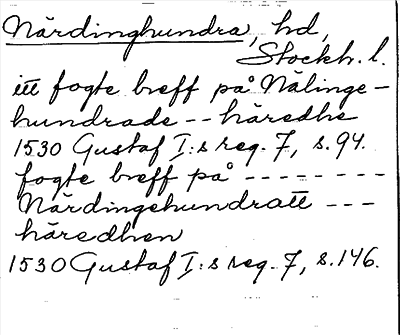 Närdinghundra, hd,
Stockh. l.
itt fogte breff på Nälinge-
hundrade -- häredhe
1530 Gustaf I:s reg. 7, s. 94.
fogte breff på --------
Närdingehundratt ---
häredhen
1530 Gustaf I:s reg. 7, s. 146.